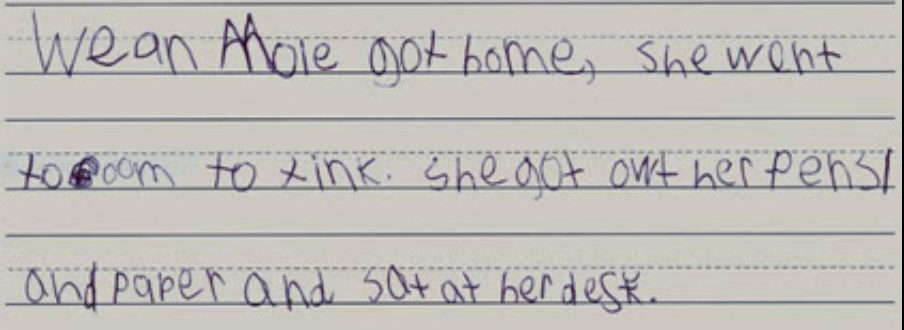 Wean Mole got home, she went
to room to tink. she got owt her pensl
and paper and sat at her desk.